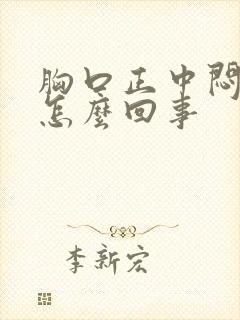 胸口正中悶
怎麼回事
李新宏